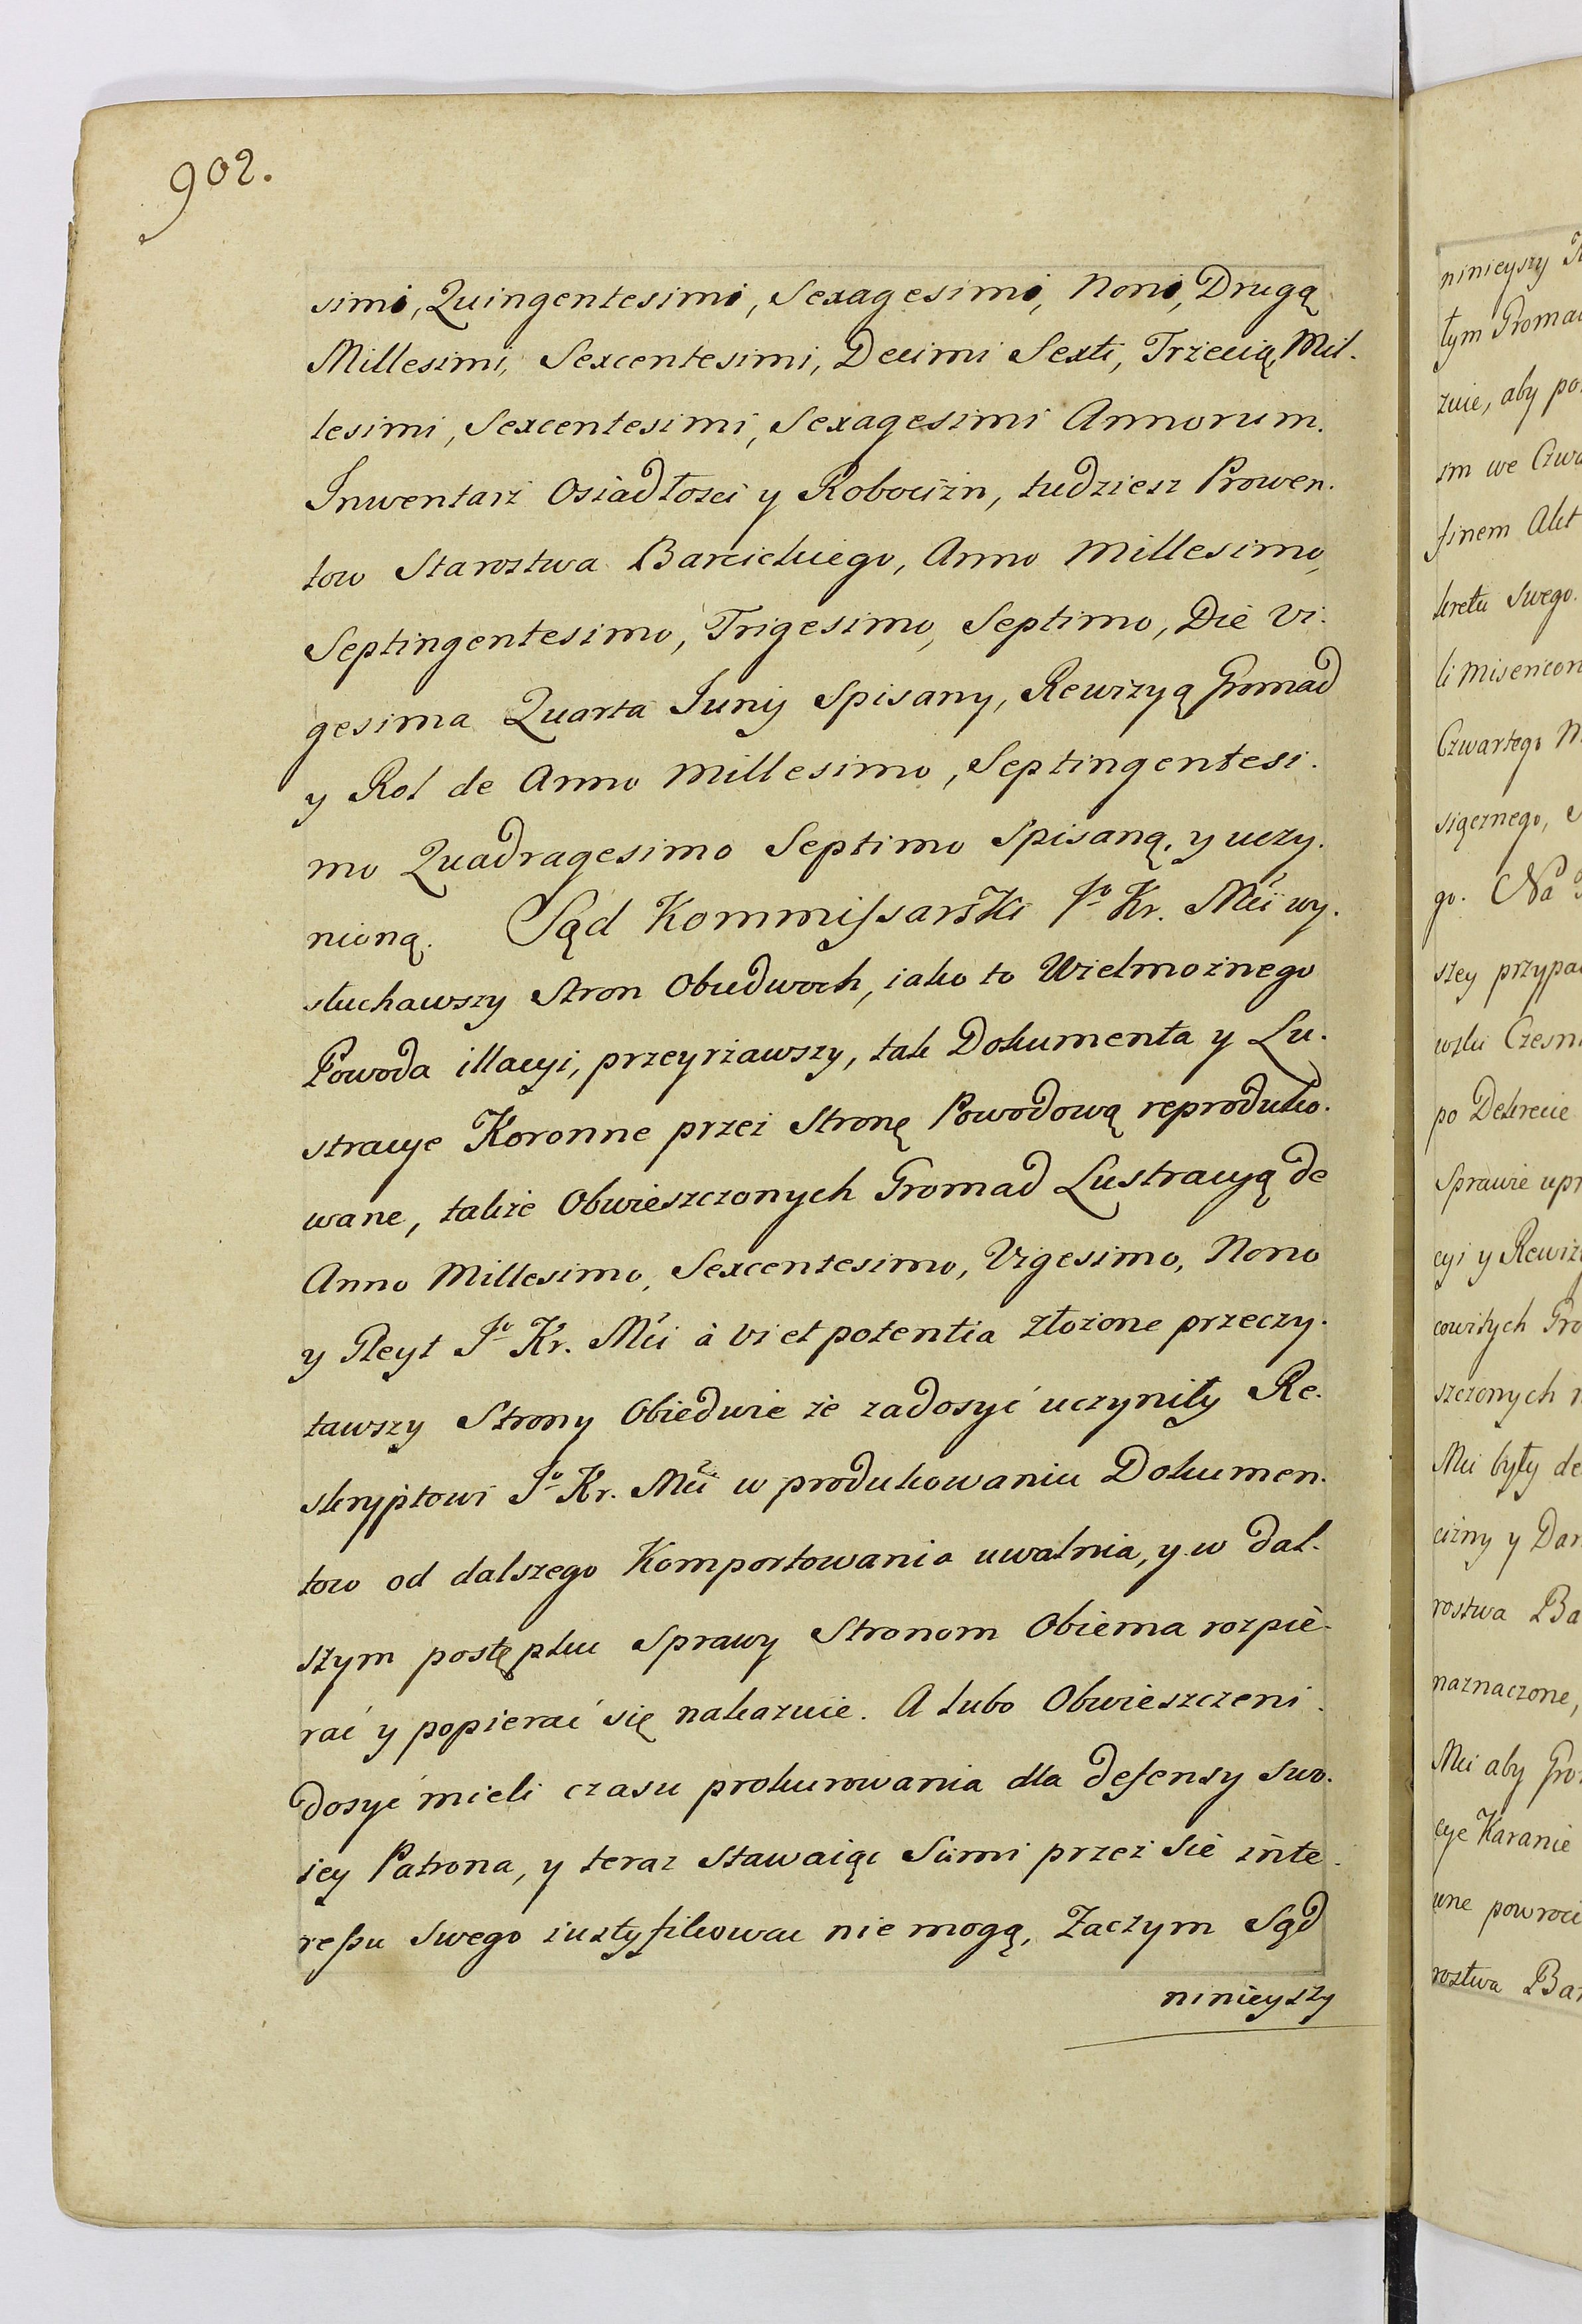 902.
simi, Quingentesimi, Sexagesimi, Noni, Drugą
Millesimi, Sexcentesimi, Decimi Sexti, Trzecią, Mil.
lesimi, Sexcentesimi, Sexagesimi Annorum.
Inwentarz Osiadłosci y Robocizn, tudziesz Prowen.
tow Starostwa Barcickiego, Anno Millesimo,
Septingentesimo, Trigesimo, Septimo, Die Vi.
gesima Quarta Junij Spisany, Rewizyą Gromad
y Rol de Anno Millesimo, Septingentesi.
mo Quadragesimo Septimo Spisaną, y uczy.
nioną. Sąd Kommissarski Jo Kr. Mci wy.
słuchawszy Stron Obudwoch, iako to Wielmożnego
Powoda illacyi, przeyrzawszy, tak Dokumenta y Lu.
stracye Koronne przez Stronę Powodową reproduko.
wane, także Obwieszczonych Gromad Lustracyą de
Anno Millesimo, Sexcentesimo, Vigesimo, Nono
y Gleyt Jo Kr. Mci à Vi et potentia złożone przeczy.
tawszy Strony Obiedwie że zadosyć uczyniły Re.
skryptowi Jo Kr. Mci w produkowaniu Dokumen.
tow od dalszego Komportowania uwalnia, y w dal.
szym postępku Sprawy Stronom Obiema rozpie.
rać y popierać się nakazuie. A lubo Obwieszczeni.
dosyć mieli czasu prokurowania dla defensy swo.
iey Patrona, y teraz Stawaiąc Sami przez się inte.
ressu swego iustyfikowac nie mogą, Zaczym Sąd
ninieyszy
ninieyszy
tym Groma
zuie, aby po
im we Czwa
finem Akt
kretu Swego.
li Misericor
Czwartego M
siącznego,
go. Na
szey przypa
wsku Czesn
po Dekrecie
Sprawie upr
cyi y Rewiz
cowitych Gro
szczonych
Mci były de
cizny y Dan
rostwa Ba
naznaczone,
Mci aby Gro
cye Karanie
une powroci
rostwa Bar